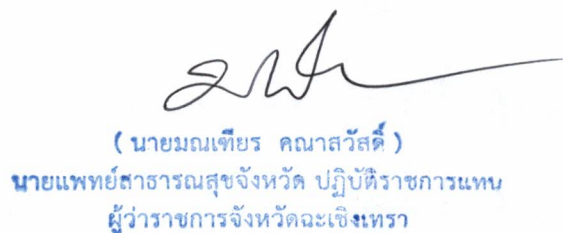 ( นายมณเฑียร คณาสวัสดิ์ )
นายแพทย์สาธารณสุขจังหวัด ปฏิบัติราชการแทน
ผู้ว่าราชการจังหวัดฉะเชิงเทรา